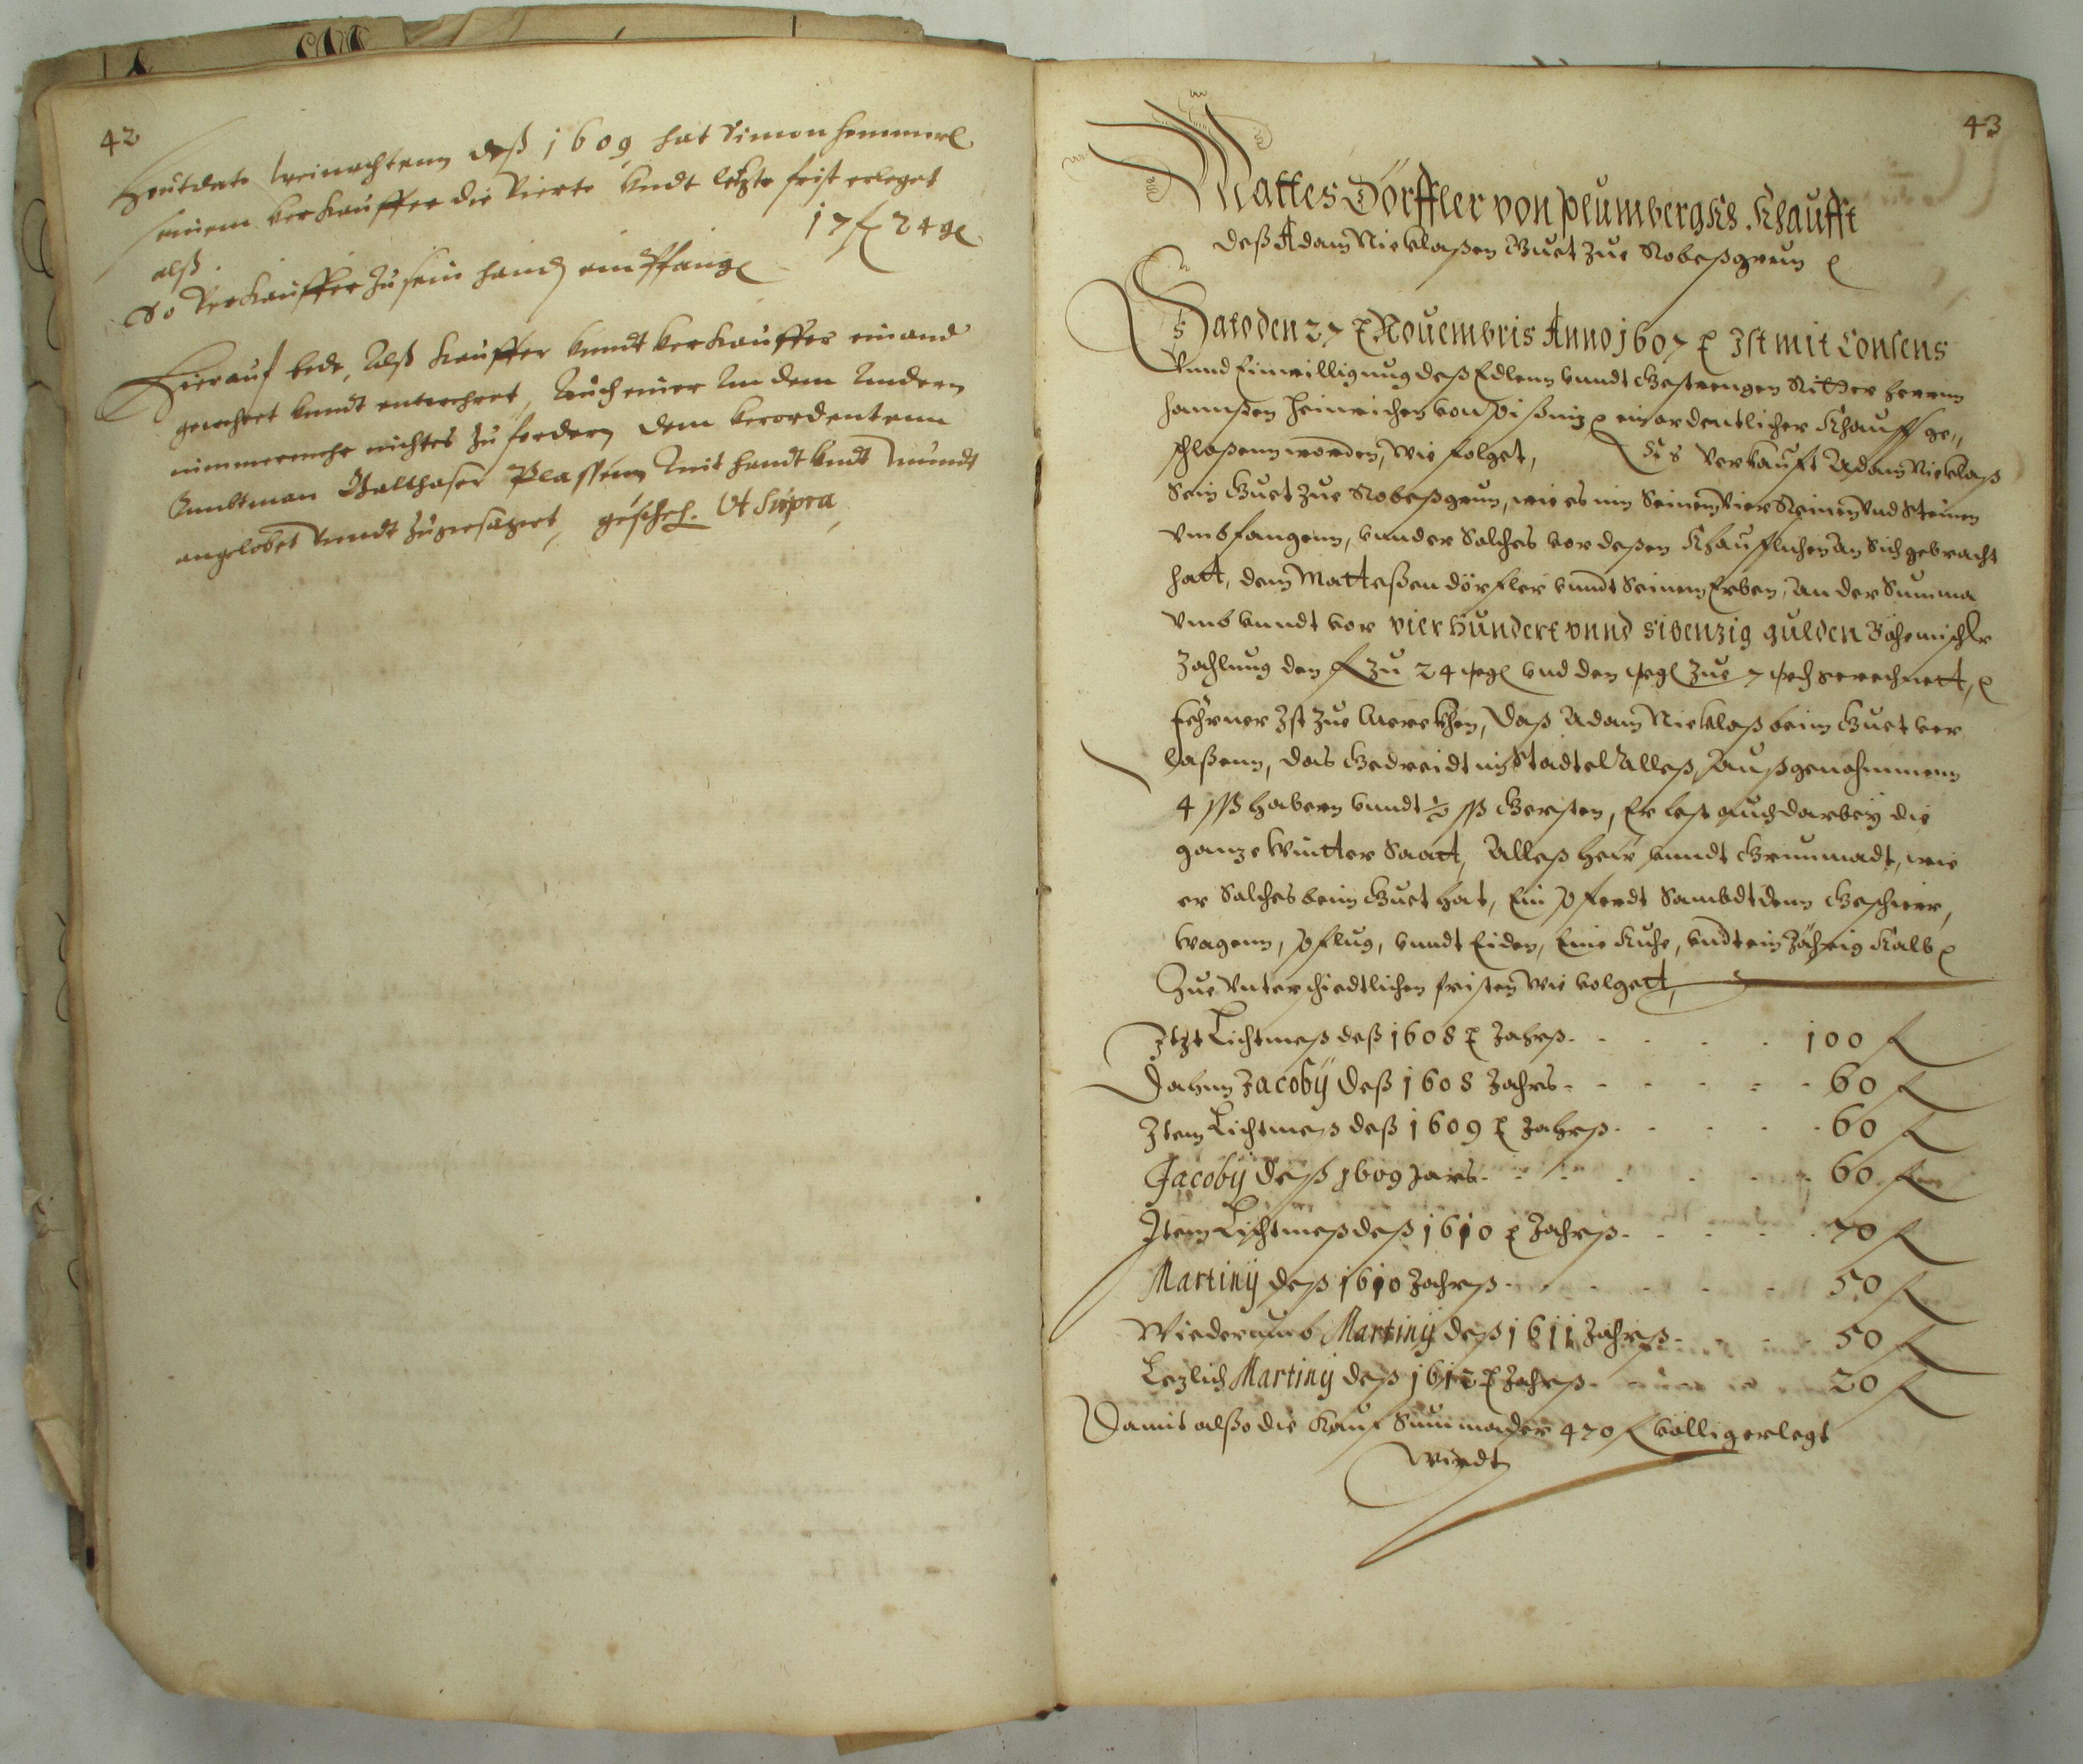 42
Heutdato Weinachtenn deß 1609 hat Simon Hemmerl
seinem verkauffer die Vierte vndt letzte frist erleget
alß 17 fl 24 gl
So Verkauffer zu sein hand empfang
Hierauf bede, Alß kauffer vnndt verkauffer einand
gewehret vnndt entwehret, Auch einer An dem Andern
nimmermehr nichtes zu fordern dem verordentenn
Ambtman Balthaser Plassenn Mit handt vndt Mundt
angelobet vnndt zugesaget, gescheh. Vt Supra
43
Mattes Dörffler von Plumbergkh Khaufft
deß Adam Nicklaßen Guet zue Robeßgrun
Dato den 27 Nouembris Anno 1607 Ist mit Consens
Vnnd Einwilligung deß Edlenn vnndt Gestrengen Ritter Herrnn
Hannßen Heinrichen von ein ordentlicher Khauff ge„
schloßenn worden, wie folget, Eß Verkauft Adam Nicklaß
Sein Guet zue Robeßgrun, wie es inn Seinen Vier Reinen vnd Steinen
vmbfangenn, vnnd er Solches vor deßen Khäufflichen an Sich gebracht
hatt, dem Matteßen dörfler vnndt Seinem Erben, An der Summa
vmb vnndt vor vier hundert vnnd sibenzig gulden Böhemischer
Zahlung den fl zu 24 gl vnd den gl zue 7 gerechnett,
Fehrner Ist zue Merckhen, Daß Adam Nicklaß beim Guet ver
laßenn, das Gedreidt im Stadtel Alleß, Außgenohmmenn
4 ßß habern vnndt ½ ßß Gersten, Er lest auch darbey die
ganze Winter Saatt, Alleß Heü vnndt Grummadt, wie
er Solches beim Guet hat, Ein Pferdt Sambdt dem Geschierr,
Wagenn, Pflug, vnndt Eiden, Eine Kuhe, vndt ein Jährig Kalb
Zue Vnterschiedtlichen fristen wie volgett,
Itzt Lichtmeß deß 1608 Jahrß - - - - 100 fl
Dahnn Jacoby deß 1608 Jahrs - - - - 60 fl
Item Lichtmeß deß 1609 Jahrß - - - - 60 fl
Jacoby deß 1609 Jars - - - - 60 fl
Item Lichtmeß deß 1610 Jahrß - - - - 70 fl
Martiny deß 1610 Jahrß - - - - 50 fl
Wiederumb Martiny deß 1611 Jahrß - - - 50 fl
Letzlich Martiny deß 1612 Jahrß - - - 20 fl
Damit alßo die Kauf Summa der 470 fl völlig erlegt
wirdt